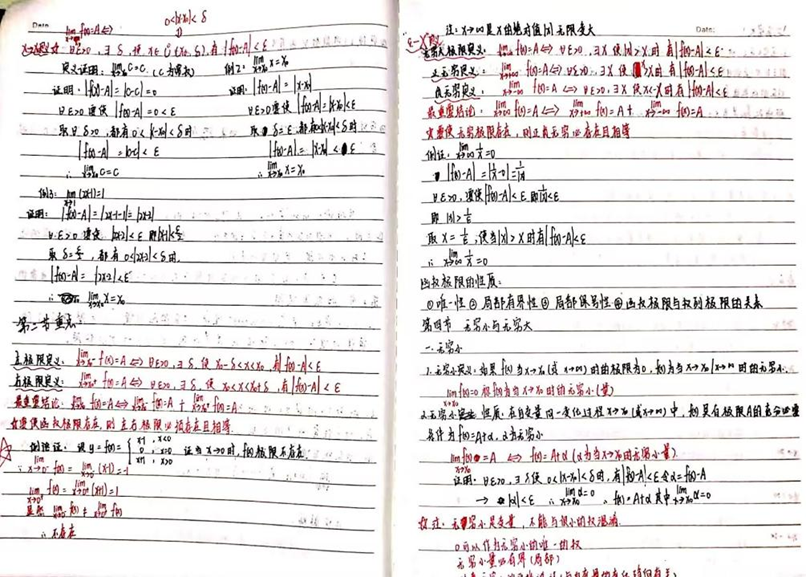 0<|x-x₀|<δ
lim f(x)=A⇔
x→x₀定义 ∀ε>0, ∃δ, 使 x∈Ů(x₀,δ), 有|f(x)-A|<ε
定义证明: lim C=C. (C为常数) 例2: lim x=x₀
证明: |f(x)-A|=|C-C|=0 证明: |f(x)-A|=|x-x₀|
∀ε>0 要使 |f(x)-A|=0<ε ∀ε>0要使|f(x)-A|=|x-x₀|<ε
取∀δ>0, 都有0<|x-x₀|<δ时 取δ=ε, 都有0<|x-x₀|<δ时
|f(x)-A|=|C-C|<ε |f(x)-A|=|x-x₀|<ε
∴ lim C=C ∴ lim x=x₀
例3: lim (2x-1)=1
证明: |f(x)-A|=|2x-1-1|=|2x-2|
∀ε>0 要使 |2x-2|<ε 即|x-1|<ε/2
取δ=ε/2, 都有0<|x-1|<δ时.
|f(x)-A|=|2x-2|<ε
∴ lim x=x₀
第二节重点:
左极限定义: lim f(x)=A⇔∀ε>0, ∃δ, 使 x₀-δ<x<x₀, 有|f(x)-A|<ε
右极限定义: lim f(x)=A⇔∀ε>0, ∃δ, 使 x₀<x<x₀+δ, 有|f(x)-A|<ε
最重要结论: lim f(x)=A⇔lim f(x)=A + lim f(x)=A
如要使函数极限存在, 则左右极限必须存在且相等
例题证: 设 y=f(x)= { x-1, x<0
0, x=0 证当x→0时, f(x)极限不存在
x+1, x>0
∵ lim f(x)= lim (x-1)=-1
lim f(x)= lim (x+1)=1
显然 lim f(x)≠lim f(x)
∴不存在
注: x→∞是x的绝对值|x|无限变大
Date:
ε-X
无穷大极限定义: lim f(x)=A⇔∀ε>0, ∃X 使|x|>X时 有|f(x)-A|<ε
正无穷定义: lim f(x)=A⇔∀ε>0, ∃X 使x>X时 有|f(x)-A|<ε
负无穷定义: lim f(x)=A⇔∀ε>0, ∃X 使x<-X时有|f(x)-A|<ε
最重要结论: lim f(x)=A⇔lim f(x)=A+ lim f(x)=A
如要使无穷极限存在, 则正负无穷必存在且相等
例证: lim 1/x=0
|f(x)-A|=|1/x-0|=1/|x|
∀ε>0, 要使|f(x)-A|<ε 即1/|x|<ε
即 |x|>1/ε
取X=1/ε, 使当|x|>X时有|f(x)-A|<ε
∴ lim 1/x=0
函数极限的性质:
①唯一性②局部有界性③局部保号性④函数极限与数列极限的关系
第四节 无穷小与无穷大
一. 无穷小
1.无穷小定义: 如果f(x)当x→x₀(或x→∞)时的极限为0, 称f(x)为当x→x₀/x→∞时的无穷小.
lim f(x)=0 称f(x)为当x→x₀时的无穷小(量)
2.无穷小 性质: 在自变量同一变化过程x→x₀(或x→∞)中, f(x)具有极限A的充分必要
条件为f(x)=A+α, α为无穷小
lim f(x)=A ⇔ f(x)=A+α (α为当x→x₀的无穷小量).
证明: ∀ε>0, ∃δ使0<|x-x₀|<δ时, 有|f(x)-A|<ε令α=f(x)-A
→ |α|<ε ∴ lim α=0 ∴ f(x)=A+α 其中lim α=0
注: 无穷小是变量, 不能与很小的数混淆
0可以作为无穷小的唯一的数
无穷小量必有界(局部)